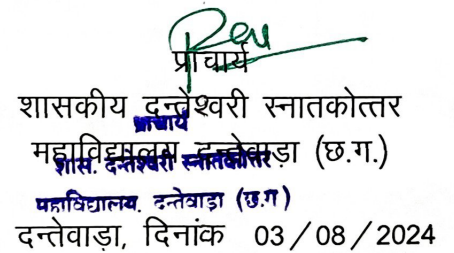 प्राचार्य
शासकीय दन्तेश्वरी स्नातकोत्तर
प्राचार्य
महाविद्यालय दन्तेवाड़ा (छ.ग.)
शास. दन्तेश्वरी स्नातकोत्तर
महाविद्यालय. दन्तेवाड़ा (छ.ग)
दन्तेवाड़ा, दिनांक 03/08/2024